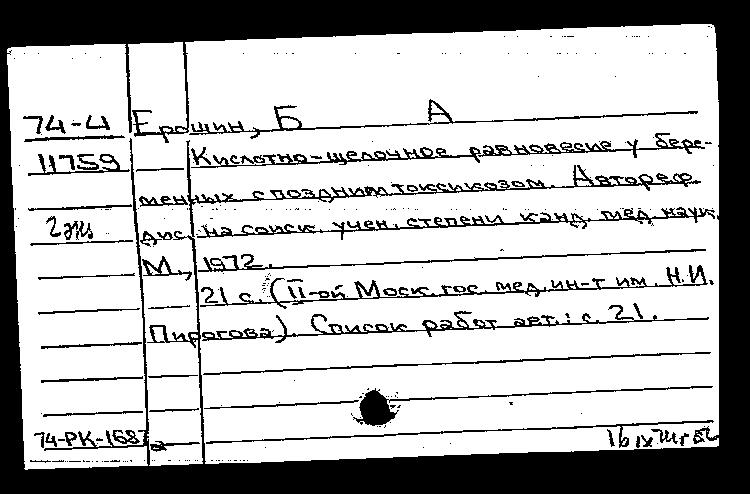 74-4 Ерошин, Б А
11759 Кислотно-щелочное равновесие у бере-
менных с поздним токсикозом. Автореф.
2 экз дис. на соиск. учен. степени канд. мед. наук.
М., 1972.
21 с. (II-ой Моск. гос. мед. ин-т им. Н.И.
Пирогова). Список работ авт.: с. 21.
74-РК-1687
16 IX